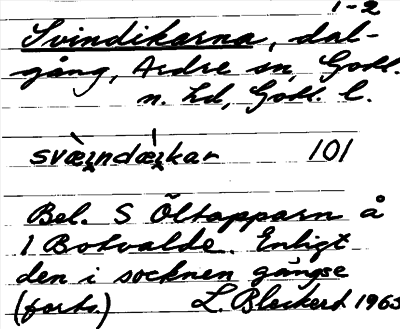 1-2
Svindikarna, dal-
gång, Ardre sn, Gotl.
n. hd, Gotl. l.
svæ̀i̯ndæ̀i̯kar 101
Bel. S Öltapparn å
1 Botvalde. Enligt
den i socknen gängse
(forts.) L. Bleckert 1963